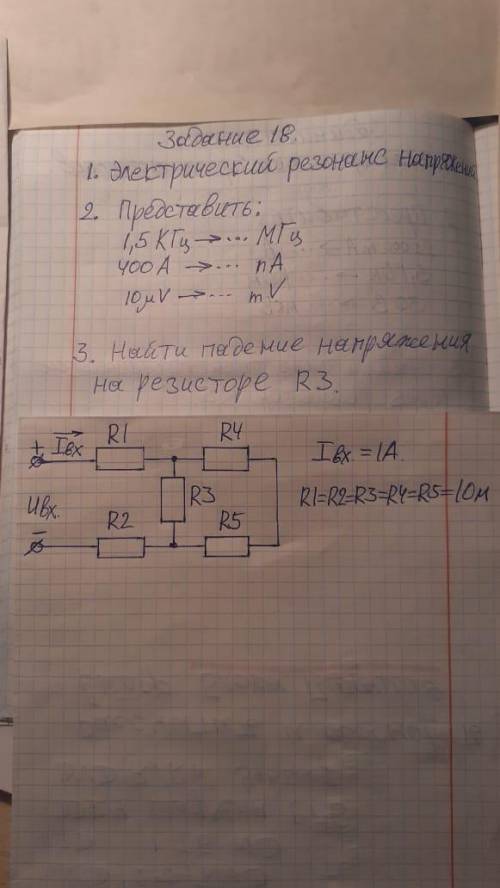 Задание 18.
1. Электрический резонанс напряжения
2. Представить:
1,5 КГц → ... МГц
400 А → ... nА
10 μV → ... mV
3. Найти падение напряжения
на резисторе R3.
+ Iвх R1 R4 Iвх. = 1А.
Uвх. R3 R1=R2=R3=R4=R5=1Ом
− R2 R5